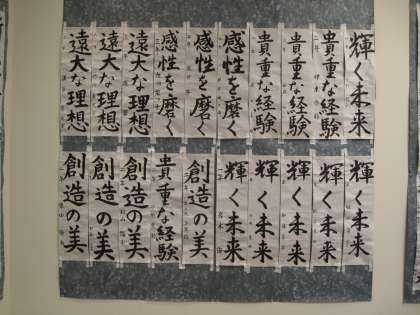 輝く未来
貴重な経験
貴重な経験
貴重な経験
感性を磨く
感性を磨く
感性を磨く
遠大な理想
遠大な理想
遠大な理想
輝く未来
輝く未来
輝く未来
輝く未来
輝く未来
創造の美
貴重な経験
創造の美
創造の美
創造の美